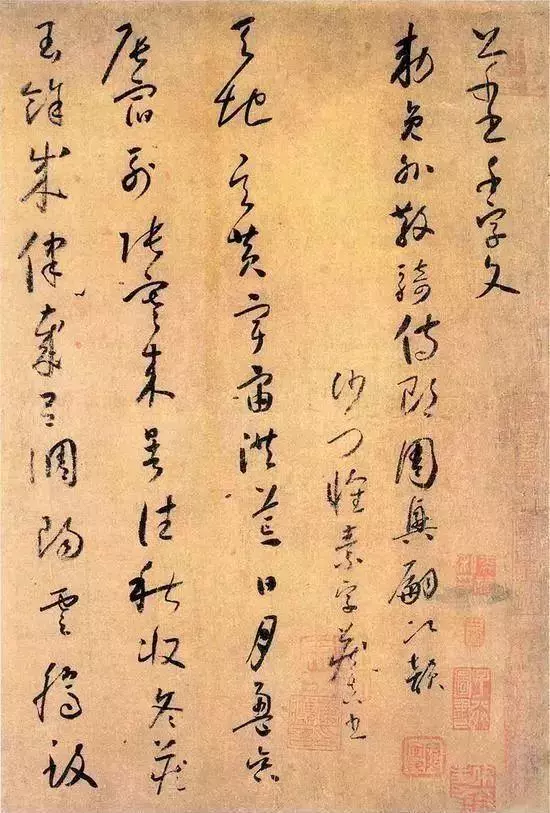 千字文
敕員外散騎侍郎周興嗣次韻
沙門懷素字藏真書
天地玄黄宇宙洪荒日月盈昃
辰宿列張寒来暑往秋收冬藏
閏餘成律歲吕調陽雲騰致